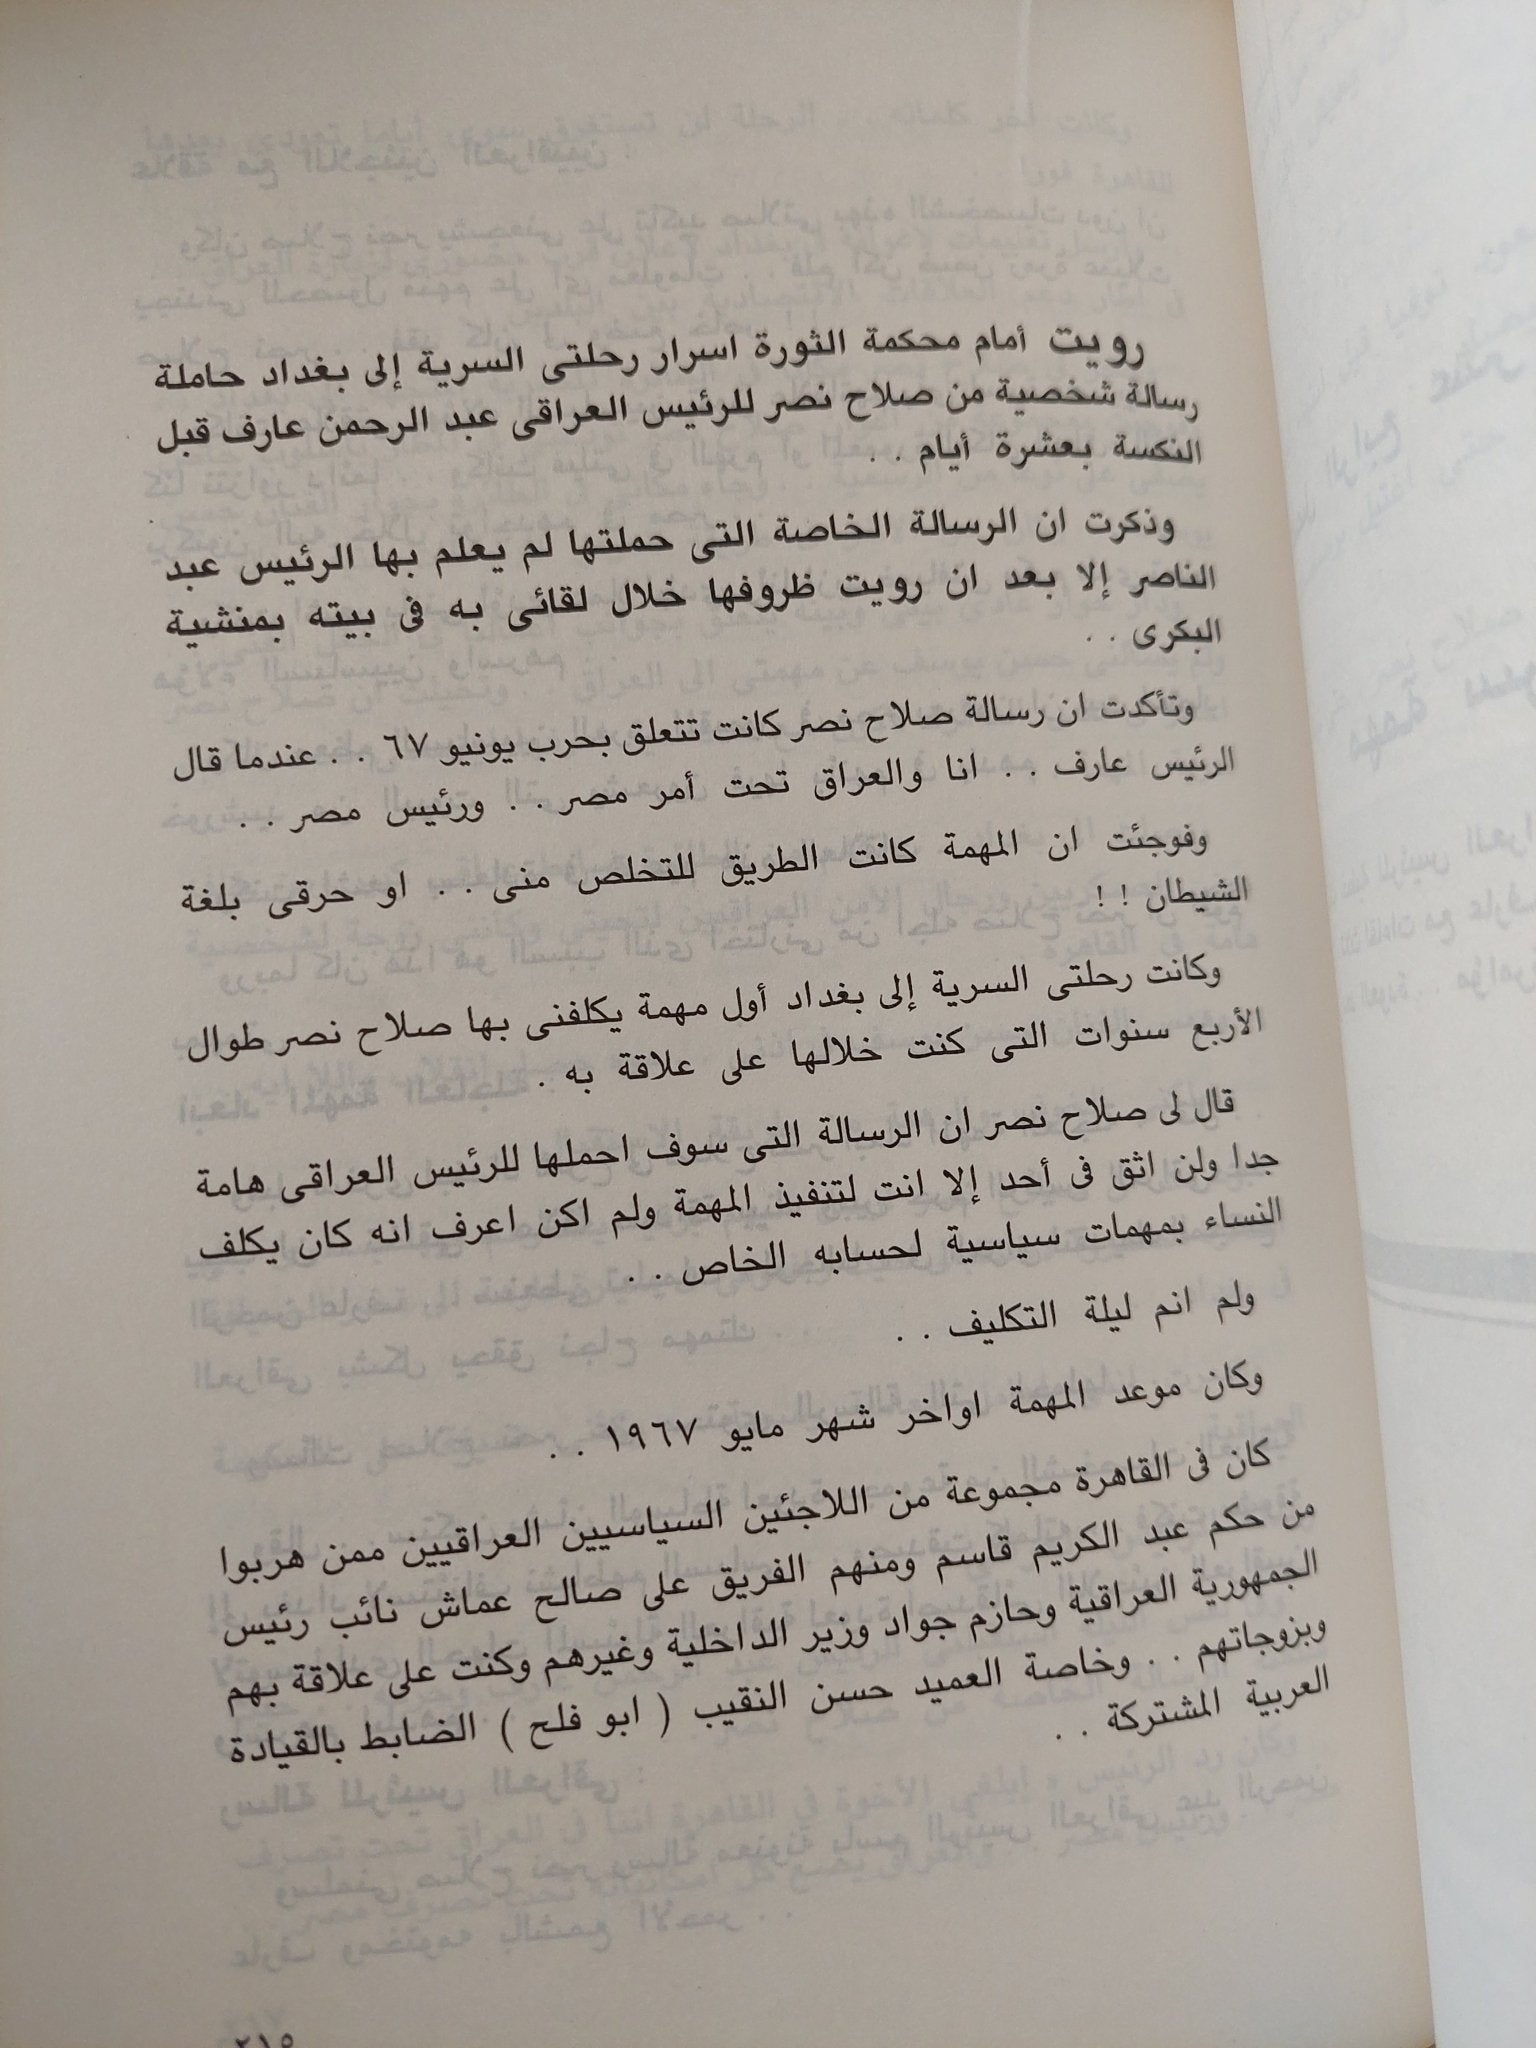 رويت أمام محكمة الثورة اسرار رحلتى السرية إلى بغداد حاملة
رسالة شخصية من صلاح نصر للرئيس العراقى عبد الرحمن عارف قبل
النكسة بعشرة أيام . .
وذكرت ان الرسالة الخاصة التى حملتها لم يعلم بها الرئيس عبد
الناصر إلا بعد ان رويت ظروفها خلال لقائى به فى بيته بمنشية
البكرى . .
وتأكدت ان رسالة صلاح نصر كانت تتعلق بحرب يونيو ٦٧ . . عندما قال
الرئيس عارف . . انا والعراق تحت أمر مصر . . ورئيس مصر . .
وفوجئت ان المهمة كانت الطريق للتخلص منى . . او حرقى بلغة
الشيطان ! !
وكانت رحلتى السرية إلى بغداد أول مهمة يكلفنى بها صلاح نصر طوال
الأربع سنوات التى كنت خلالها على علاقة به .
قال لى صلاح نصر ان الرسالة التى سوف احملها للرئيس العراقى هامة
جدا ولن اثق فى أحد إلا انت لتنفيذ المهمة ولم اكن اعرف انه كان يكلف
النساء بمهمات سياسية لحسابه الخاص . .
ولم انم ليلة التكليف . .
وكان موعد المهمة اواخر شهر مايو ١٩٦٧ . .
كان فى القاهرة مجموعة من اللاجئين السياسيين العراقيين ممن هربوا
من حكم عبد الكريم قاسم ومنهم الفريق على صالح عماش نائب رئيس
الجمهورية العراقية وحازم جواد وزير الداخلية وغيرهم وكنت على علاقة بهم
وبزوجاتهم . . وخاصة العميد حسن النقيب ( ابو فلح ) الضابط بالقيادة
العربية المشتركة . .
٢١٥